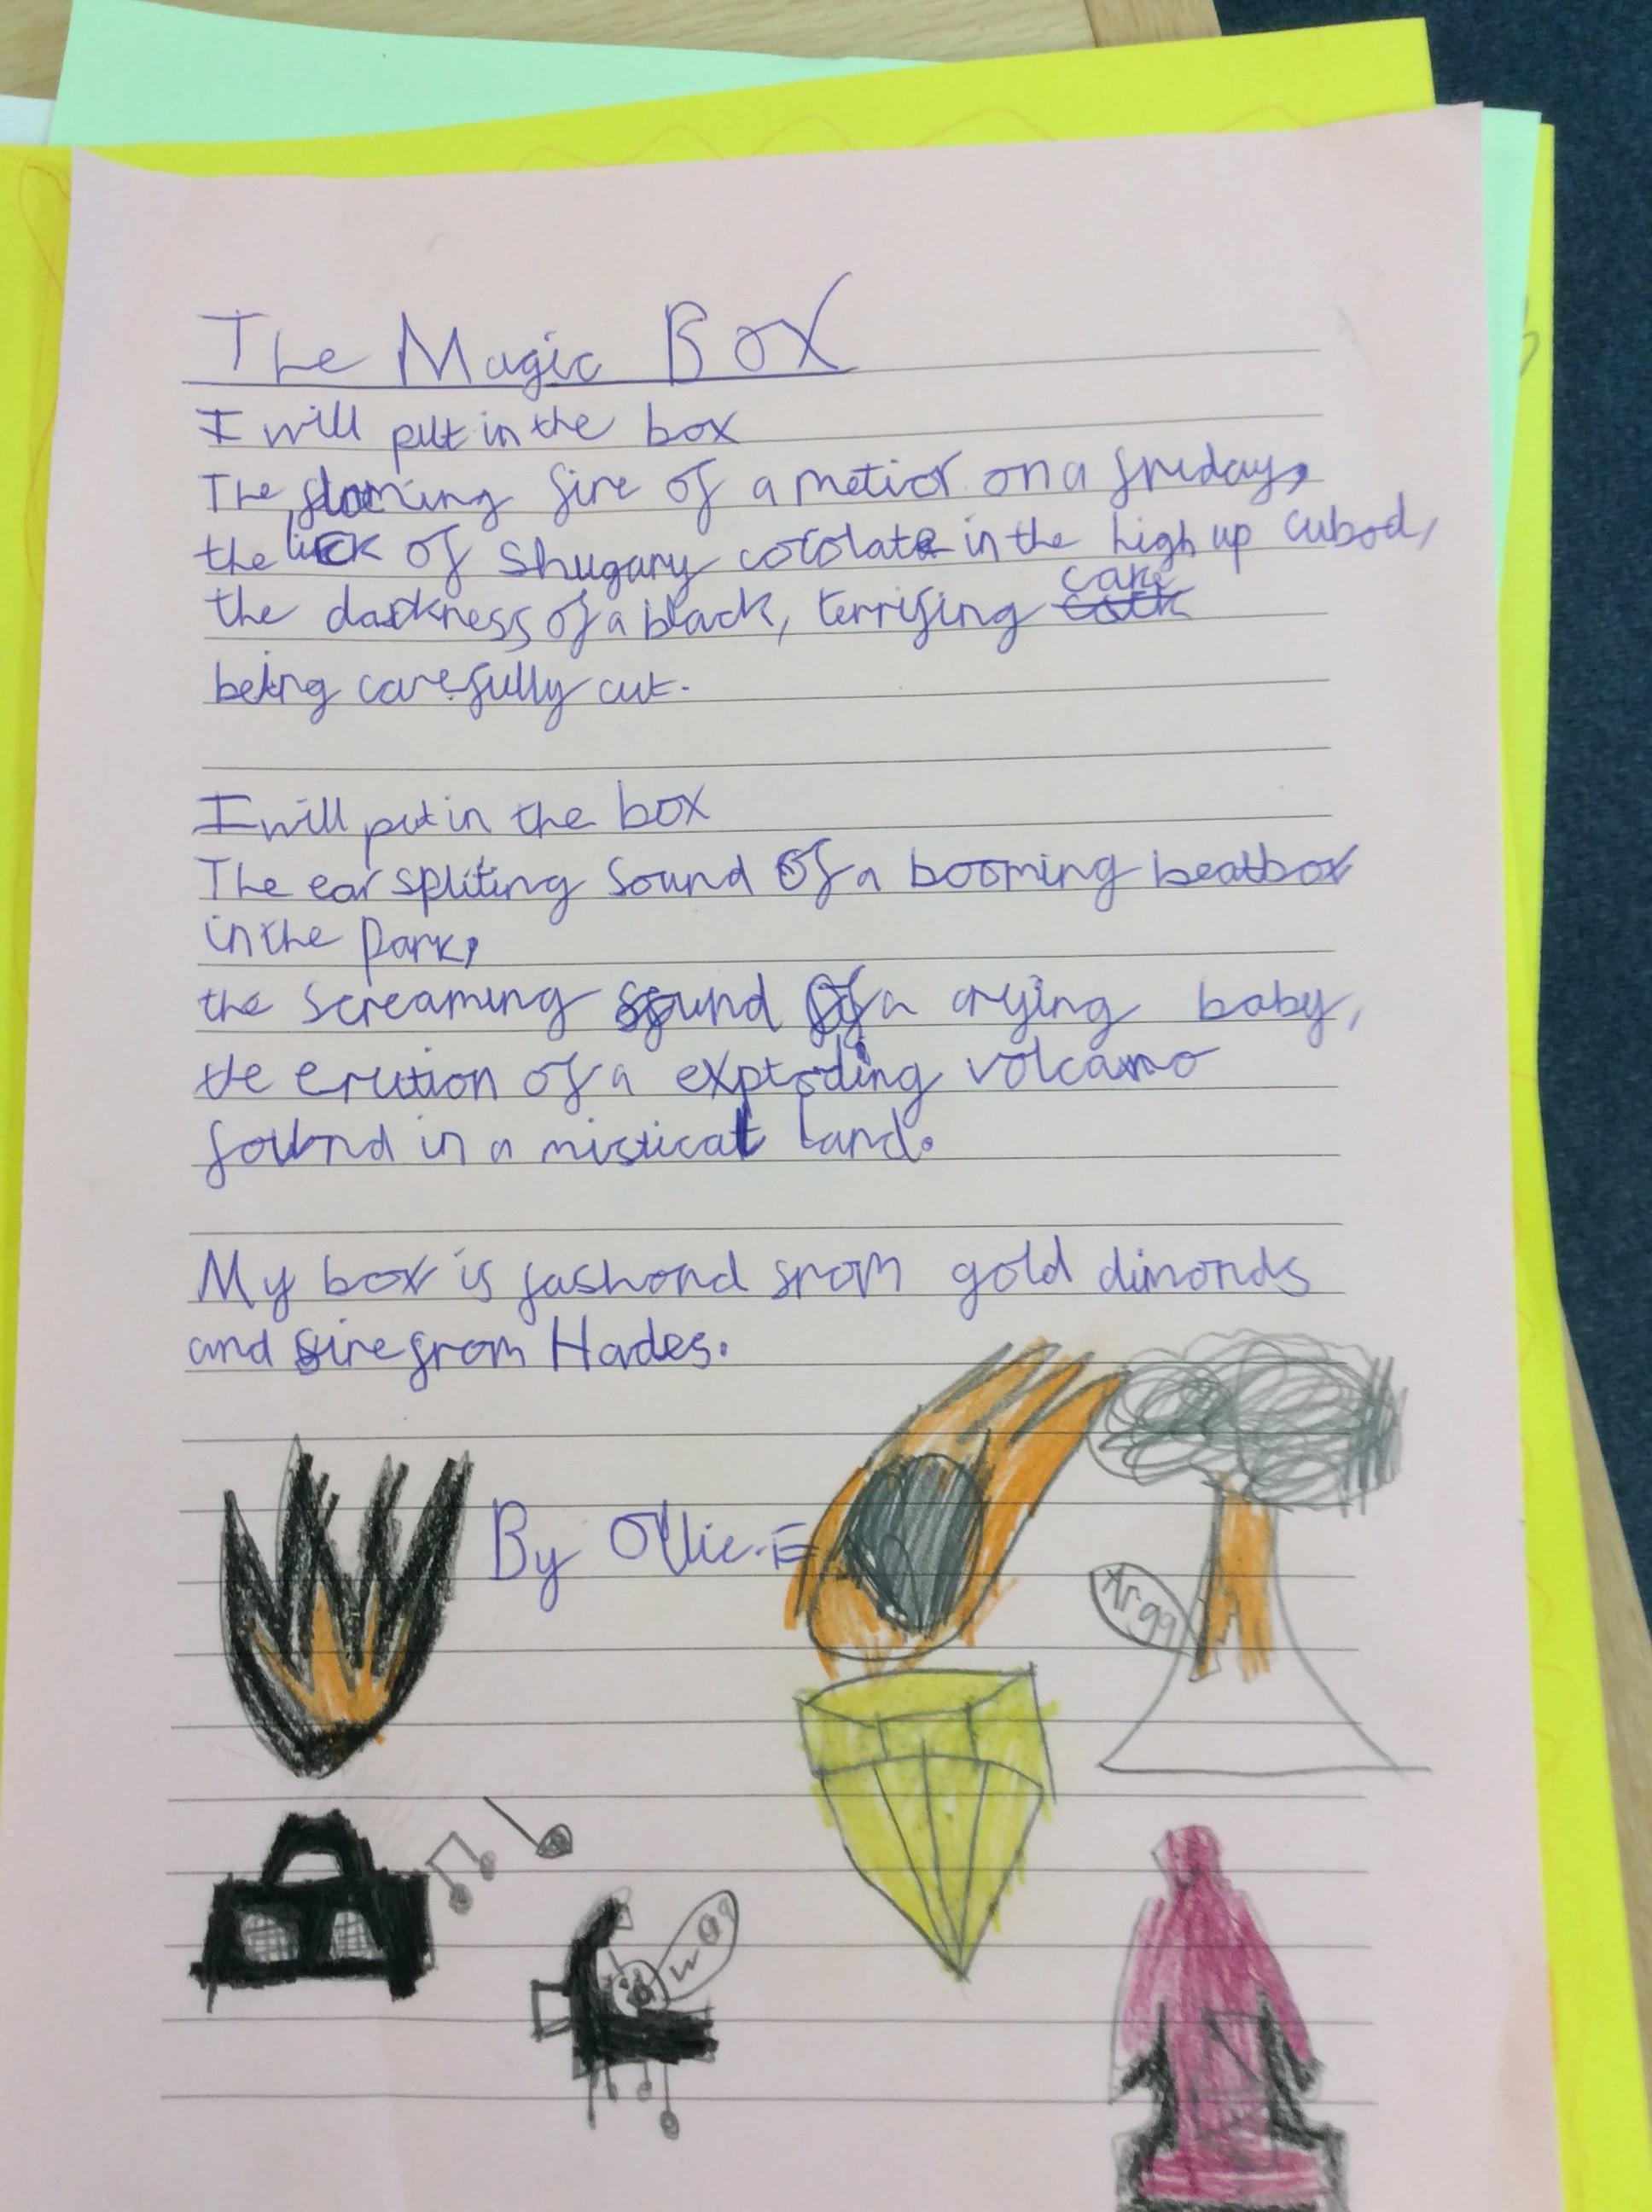 The Magic Box
I will put in the box
The flaming fire of a metior on a friday,
the lick of shugary cocolate in the high up cubod,
the darkness of a black, terrifing cake
being carefully cut.
I will put in the box
The ear spliting sound of a booming beatbox
in the park,
the screaming sound of a crying baby,
the erution of a exploding volcano
found in a mistical land.
My box is fashond from gold dimonds
and fire from Hades.
By Ollie.E
Argg
waa